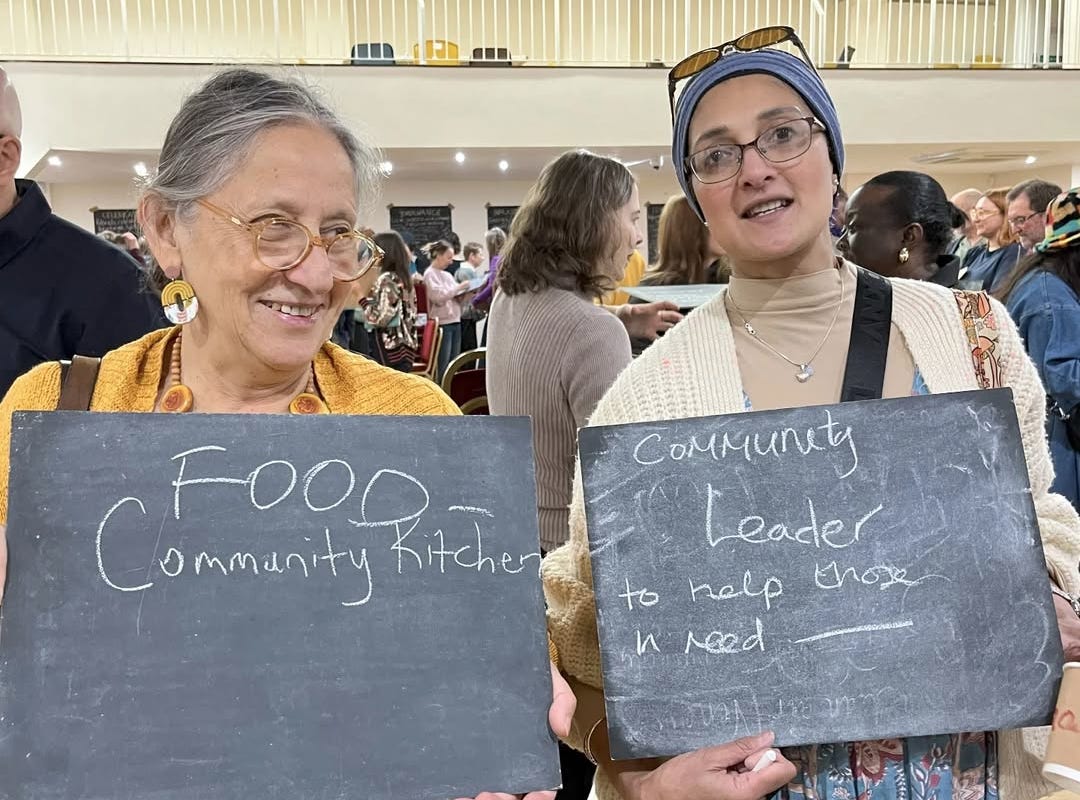 FOOD –
Community Kitchen
Community
Leader
to help those
in need —